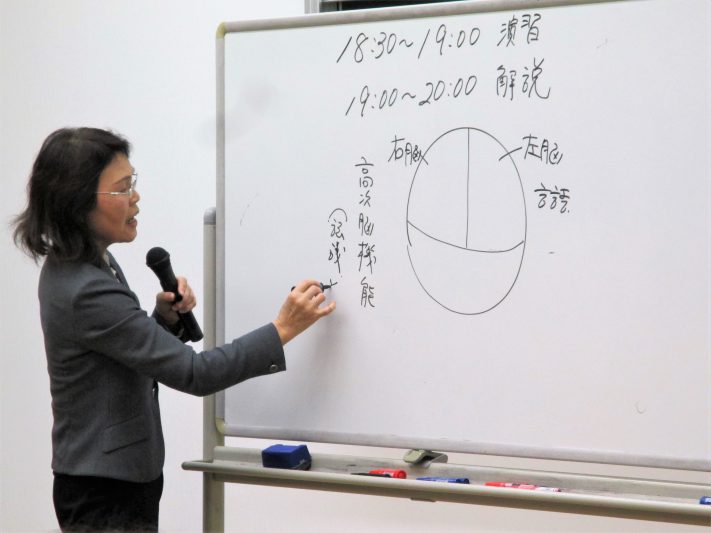 18:30~19:00 演習
19:00~20:00 解説
右脳
左脳
言語
高次脳機能
(認識